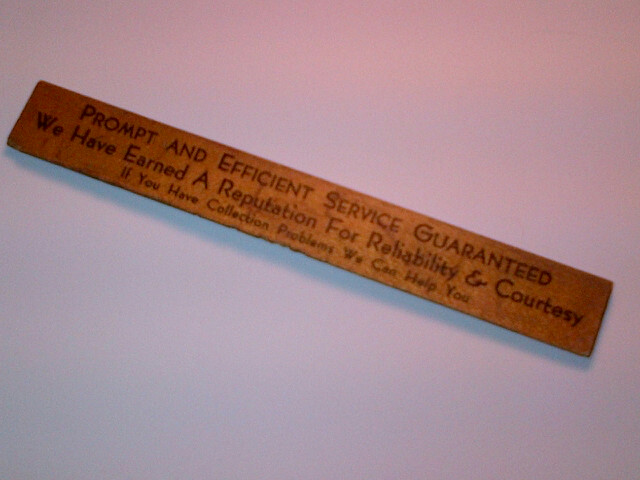 PROMPT AND EFFICIENT SERVICE GUARANTEED
We Have Earned A Reputation For Reliability & Courtesy
If You Have Collection Problems We Can Help You